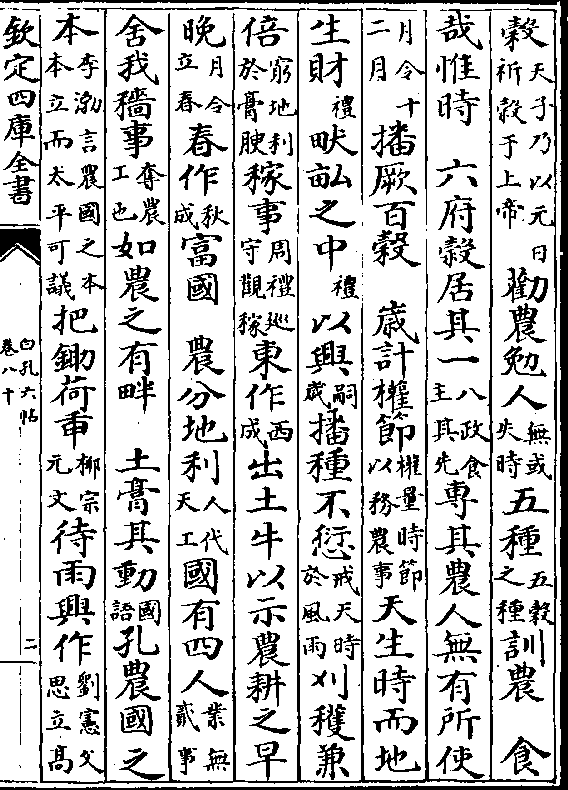 穀天子乃以元日祈穀于上帝勸農勉人無或失時五種五穀之種訓農　食
哉惟時　六府穀居其一八政食主其先專其農人無有所使
月令十二月播厥百穀　歳計權節權量時節以務農事天生時而地
生財禮畎畝之中禮以興嗣歳播種不愆戒天時於風雨刈穫兼
倍窮地利於膏腴稼事周禮巡守觀稼東作西成出土牛以示農耕之早
晩月令立春春作秋成富國　農分地利人代天工國有四人業無貳事
舍我穡事奪農工也如農之有畔　土膏其動國語孔農國之
本李渤言農國之本本立而太平可議把鋤荷重柳宗元文待雨興作劉憲父思立髙
欽定四庫全書
白孔六帖
卷八十
二